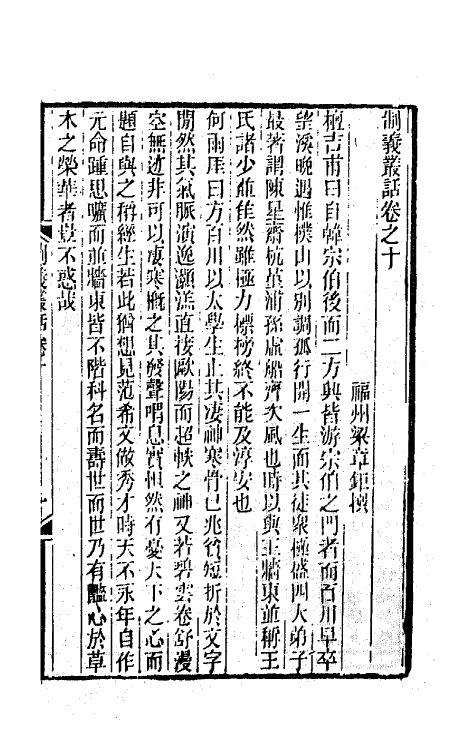 制義叢話卷之十
福州梁章鉅撰
檀吉甫曰自韓宗伯後而二方興皆游宗伯之門者而百川早卒
望溪晚遇惟樸山以別調孤行開一生面其徒眾極盛四大弟子
最著謂陳星齋杭堇浦孫虛船齊次風也時以與王牆東並稱王
氏諸少雖隹然雖極力標榜終不能及淳安也
何雨厓曰方百川以太學生止其凄神寒骨已兆貧短折於文字
間然其氣脈演逸灝漾直接歐陽而超軼之神又若碧雲卷舒漫
空無迹非可以凄寒槪之其發聲喟息實怛然有憂天下之心而
題自與之稱經生若此猶想見范希文做秀才時天不永年自作
元命踵思曠而並牆東皆不階科名而壽世而世乃有豔心於草
木之榮華者豈不惑哉
制義叢話 卷十